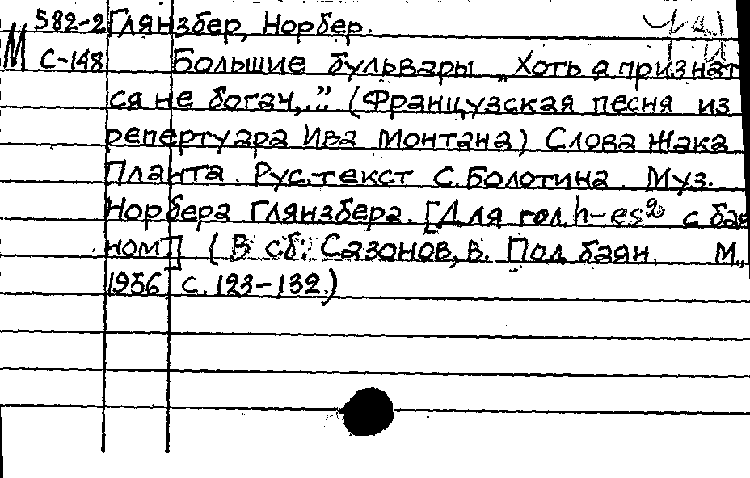 582-2 Глянзбер, Норбер.
М С-148 Большие бульвары „Хоть я признат
ся не богач,..” (Французская песня из
репертуара Ива Монтана) Слова Жака
Планта. Рус.текст С.Болотина. Муз.
Норбера Глянзбера. [Для гол. h-es² с бая
ном] (В сб: Сазонов, В. Под баян М.,
1956 с. 123-132.)